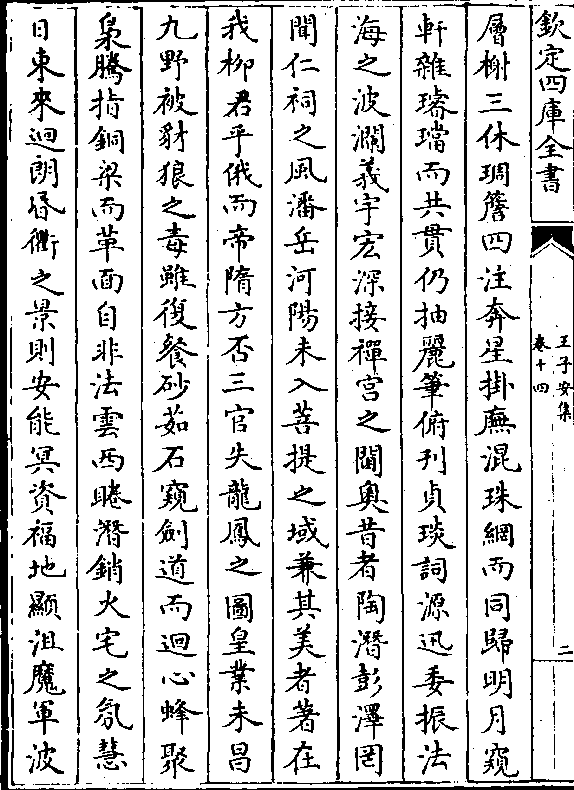 欽定四庫全書
王子安集
卷十四
二
層榭三休琱簷四注奔星掛廡混珠網而同歸明月窺
軒雜璿璫而共貫仍抽麗筆俯刋貞琰詞源迅委振法
海之波瀾義宇宏深接禪宮之閫奥昔者陶潛彭澤罔
聞仁祠之風潘岳河陽未入菩提之域兼其美者著在
我栁君乎俄而帝隋方否三官失龍鳳之圖皇業未昌
九野被豺狼之毒雖復餐砂茹石窺劍道而迴心蜂聚
梟騰指銅梁而革面自非法雲西睠潛銷火宅之氛慧
日東來迥朗昏衢之景則安能冥資福地顯沮魔軍波